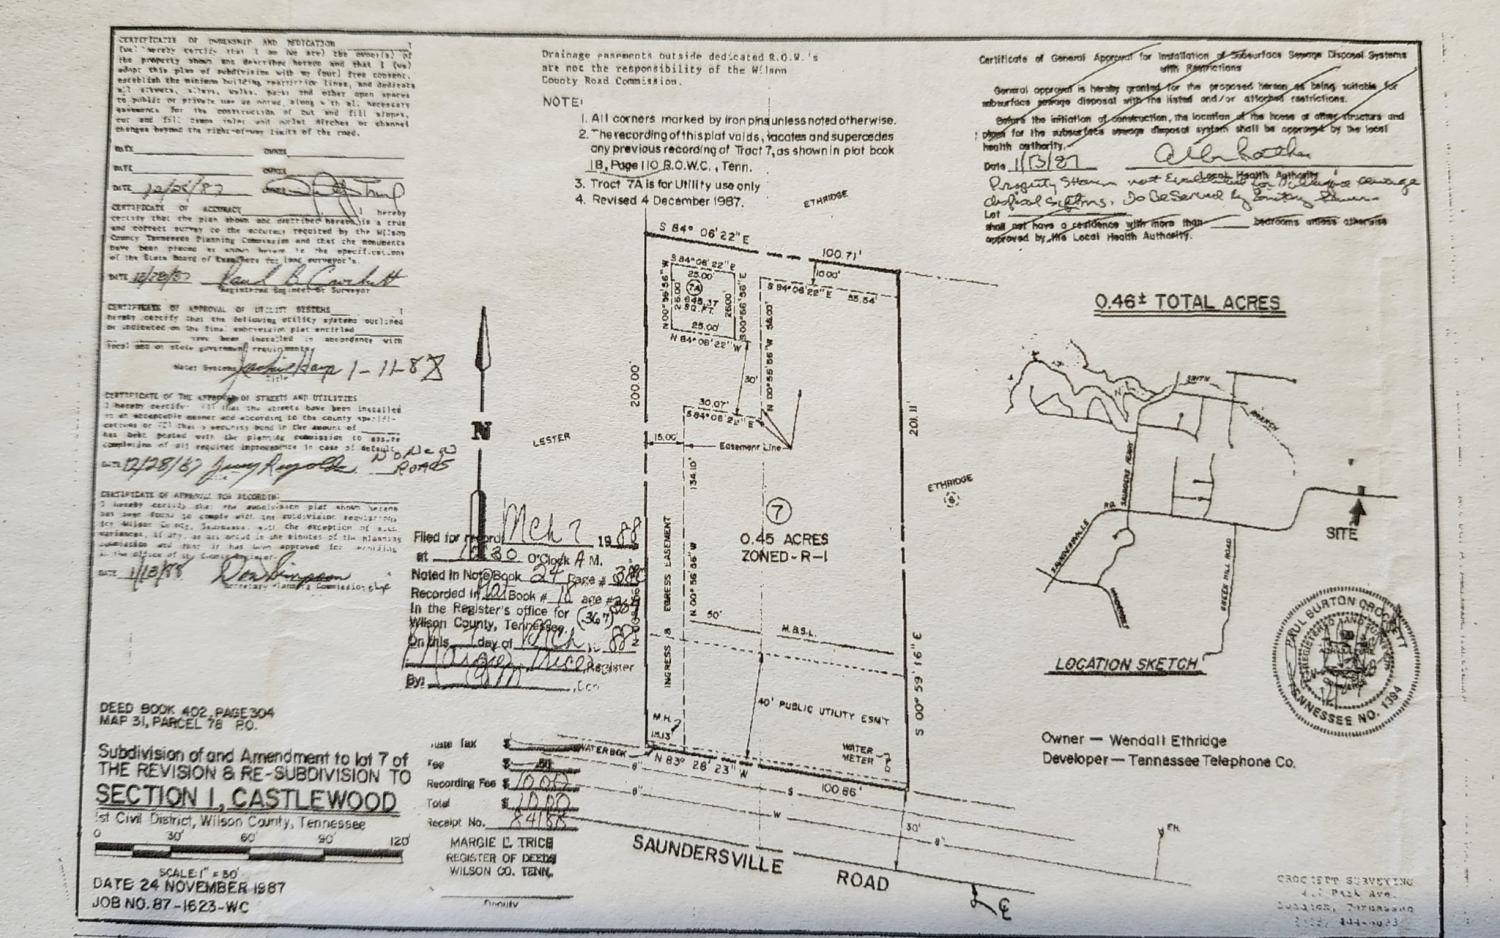 CERTIFICATE OF OWNERSHIP AND DEDICATION
the property shown and described hereon and that I (we)
adopt this plan of subdivision with my (our) free consent,
establish the minimum building restriction lines, and dedicate
all streets, alleys, walks, parks and other open spaces
to public or private use as noted, along with all necessary
easements for the construction of cut and fill slopes,
DATE OWNER
DATE OWNER
DATE 12/28/87
CERTIFICATE OF ACCURACY
I hereby
certify that the plan shown and described hereon is a true
and correct survey to the accuracy required by the Wilson
County Tennessee Planning Commission and that the monuments
have been placed as shown hereon to the specifications
of the State Board of Examiners for land surveyor's.
DATE 12/28/87 Paul B. Crockett
Registered Engineer or Surveyor
CERTIFICATE OF APPROVAL OF UTILITY SYSTEMS
hereby certify that the following utility systems outlined
or indicated on the final subdivision plat entitled
have been installed in accordance with
local and or state government requirements.
Water Systems 1-11-88
Title
CERTIFICATE OF THE APPROVAL OF STREETS AND UTILITIES
I hereby certify: (1) that the streets have been installed
in an acceptable manner and according to the county specifi-
cations or (2) that a security bond in the amount of
has been posted with the planning commission to assure
completion of all required improvements in case of default.
DATE 12/28/87 Jerry Reynolds No New ROADS
CERTIFICATE OF APPROVAL FOR RECORDING
I hereby certify that the subdivision plat shown hereon
has been found to comply with the subdivision regulations
for Wilson County, Tennessee, with the exception of such
variances, if any, as are noted in the minutes of the planning
commission and that it has been approved for recording
in the office of the County Register.
DATE 1/18/88 Don Simpson
Secretary Planning Commission
DEED BOOK 402, PAGE 304
MAP 31, PARCEL 78 P.O.
Subdivision of and Amendment to lot 7 of
THE REVISION & RE-SUBDIVISION TO
SECTION I, CASTLEWOOD
1st Civil District, Wilson County, Tennessee
0 30' 60' 90' 120'
SCALE: 1" = 30'
DATE: 24 NOVEMBER 1987
JOB NO. 87-1623-WC
Drainage easements outside dedicated R.O.W.'s
are not the responsibility of the Wilson
County Road Commission.
NOTE:
1. All corners marked by iron pins unless noted otherwise.
2. The recording of this plat voids, vacates and supercedes
any previous recording of Tract 7, as shown in plat book
18, Page 110 R.O.W.C., Tenn.
3. Tract 7A is for Utility use only
4. Revised 4 December 1987.
N
Filed for record Mch 7 1988
at 10:30 O'Clock A M.
Noted in Note Book 24 Page #
Recorded in Book # 18 page #
In the Register's office for (367)
Wilson County, Tennessee.
On this day of Mch 88
Margie Trice, Register
By:
State Tax $
Fee $
Recording Fee $ 10.00
Total $ 10.00
Receipt No. 84188
MARGIE L. TRICE
REGISTER OF DEEDS
WILSON CO. TENN.
Deputy
ETHRIDGE
S 84° 06' 22" E 100.71'
S 84° 06' 22" E
25.00'
7A
648.37
SQ. FT.
N 00° 56' 56" W
26.00'
26.00'
S 00° 56' 56" E
25.00'
N 84° 06' 22" W
10.00'
S 84° 06' 22" E 55.54'
56.00'
N 00° 56' 56" W
30'
30.07'
S 84° 06' 22" E
Easement Line
15.00'
LESTER
200.00'
134.10'
N 00° 56' 56" W
INGRESS & EGRESS EASEMENT
7
0.45 ACRES
ZONED-R-1
201.11'
S 00° 59' 16" E
ETHRIDGE
6
50' M.B.S.L.
40' PUBLIC UTILITY ESM'T
M.H.
15.13'
WATER BOX
WATER METER
N 83° 28' 23" W 100.86'
8" S
6" W
8"
30'
F.H.
SAUNDERSVILLE ROAD
Certificate of General Approval for Installation of Subsurface Sewage Disposal Systems
with Restrictions
General approval is hereby granted for the proposed hereon as being suitable for
subsurface sewage disposal with the listed and/or attached restrictions.
Before the initiation of construction, the location of the house or other structure and
plans for the subsurface sewage disposal system shall be approved by the local
health authority.
Date 1/13/87
Local Health Authority
Property Shown not Evaluated for Subsurface Sewage
disposal Systems. To Be Served by Sanitary Sewers
Lot
shall not have a residence with more than bedrooms unless otherwise
approved by the Local Health Authority.
0.46± TOTAL ACRES
SMITH
BRANCH
SAUNDERS FERRY RD.
SAUNDERSVILLE
GREEN HILL ROAD
SITE
LOCATION SKETCH
PAUL BURTON CROCKETT
REGISTERED LAND SURVEYOR
TENNESSEE NO. 1394
Owner — Wendall Ethridge
Developer — Tennessee Telephone Co.
CROCKETT SURVEYING